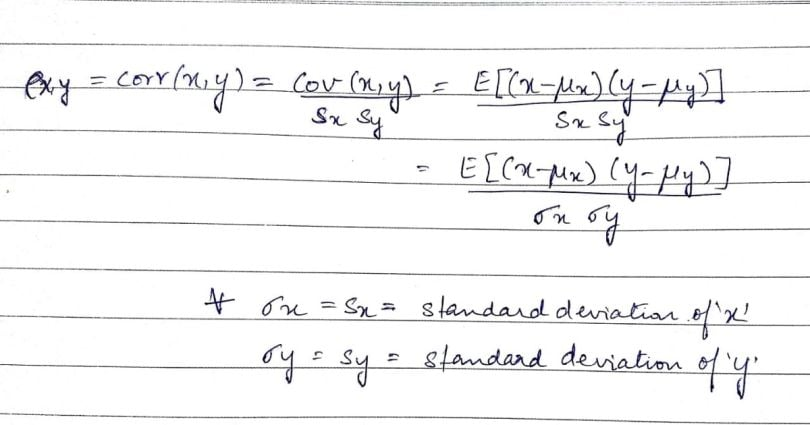 ρxy = corr(x,y) = Cov(x,y) / Sx Sy = E[(x-μx)(y-μy)] / Sx Sy
= E[(x-μx)(y-μy)] / σx σy
∀ σx = Sx = standard deviation of 'x'
σy = Sy = standard deviation of 'y'